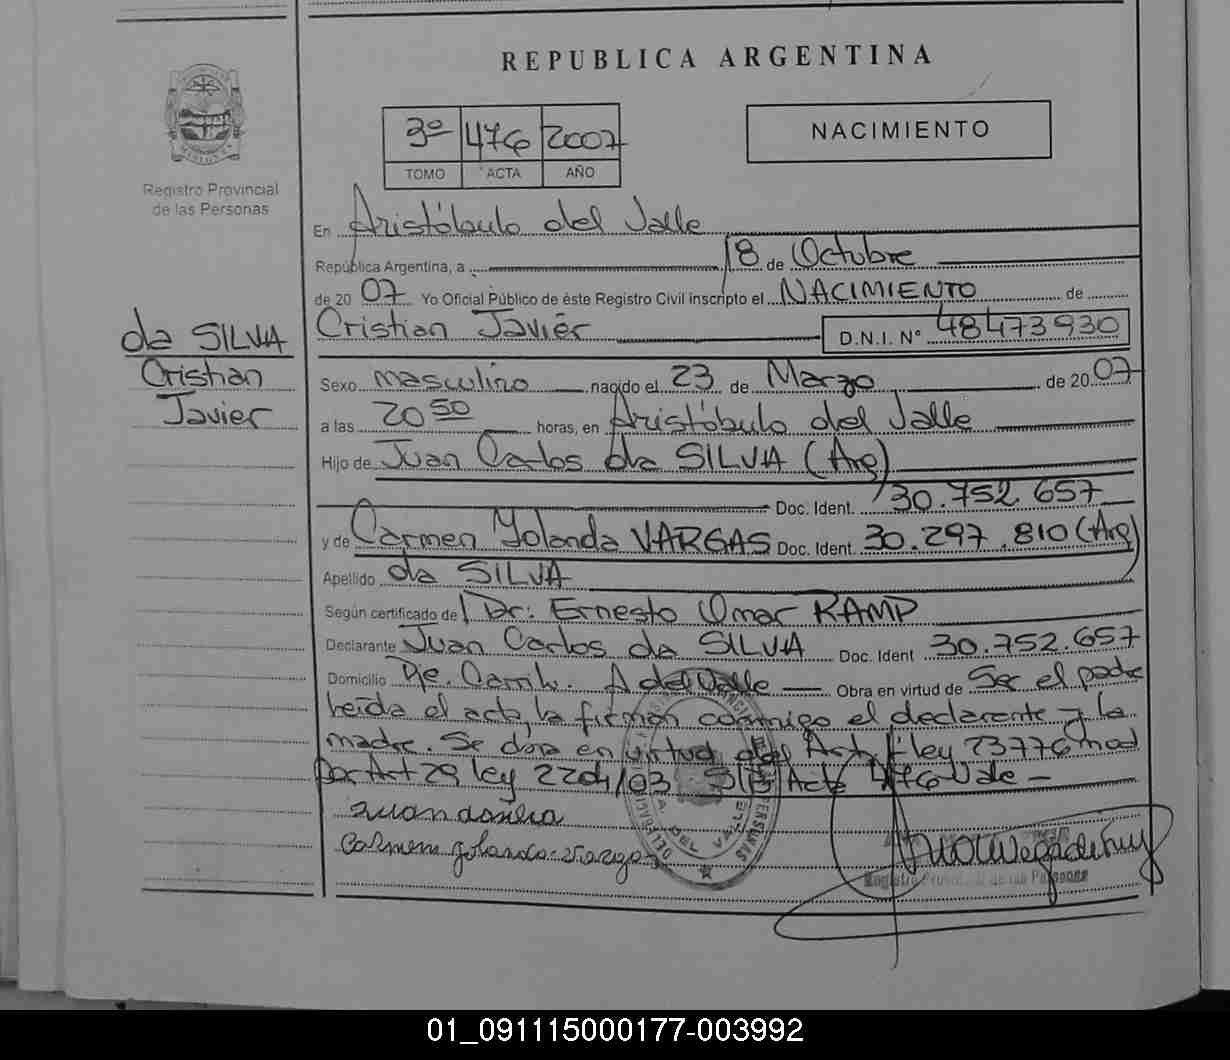 REPUBLICA ARGENTINA
3º 476 2007
TOMO ACTA AÑO
NACIMIENTO
Registro Provincial
de las Personas
En Aristóbulo del Valle
República Argentina, a 18 de Octubre
de 2007 Yo Oficial Público de éste Registro Civil inscripto el NACIMIENTO de
Cristian Javier D.N.I. Nº 48473930
da SILVA
Cristian
Javier
Sexo masculino nacido el 23 de Marzo de 2007
a las 20 50 horas, en Aristóbulo del Valle
Hijo de Juan Carlos da SILVA (Arg)
Doc. Ident. 30.752.657
y de Carmen Yolanda VARGAS Doc. Ident. 30.297.810 (Arg)
Apellido da SILVA
Según certificado de Dr: Ernesto Omar RAMP
Declarante Juan Carlos da SILVA Doc. Ident 30.752.657
Domicilio A del Valle Obra en virtud de Ser el padre
leída el acta, la firman conmigo el declarante y la
madre. Se dota en virtud del Art ley 23776 mod
por Art 29 ley 22 /03 S/B Acta 476 Vale -
Juan dasilva
Carmen yolanda vargas
DEL VALLE
Registro Provincial de las Personas
01_091115000177-003992